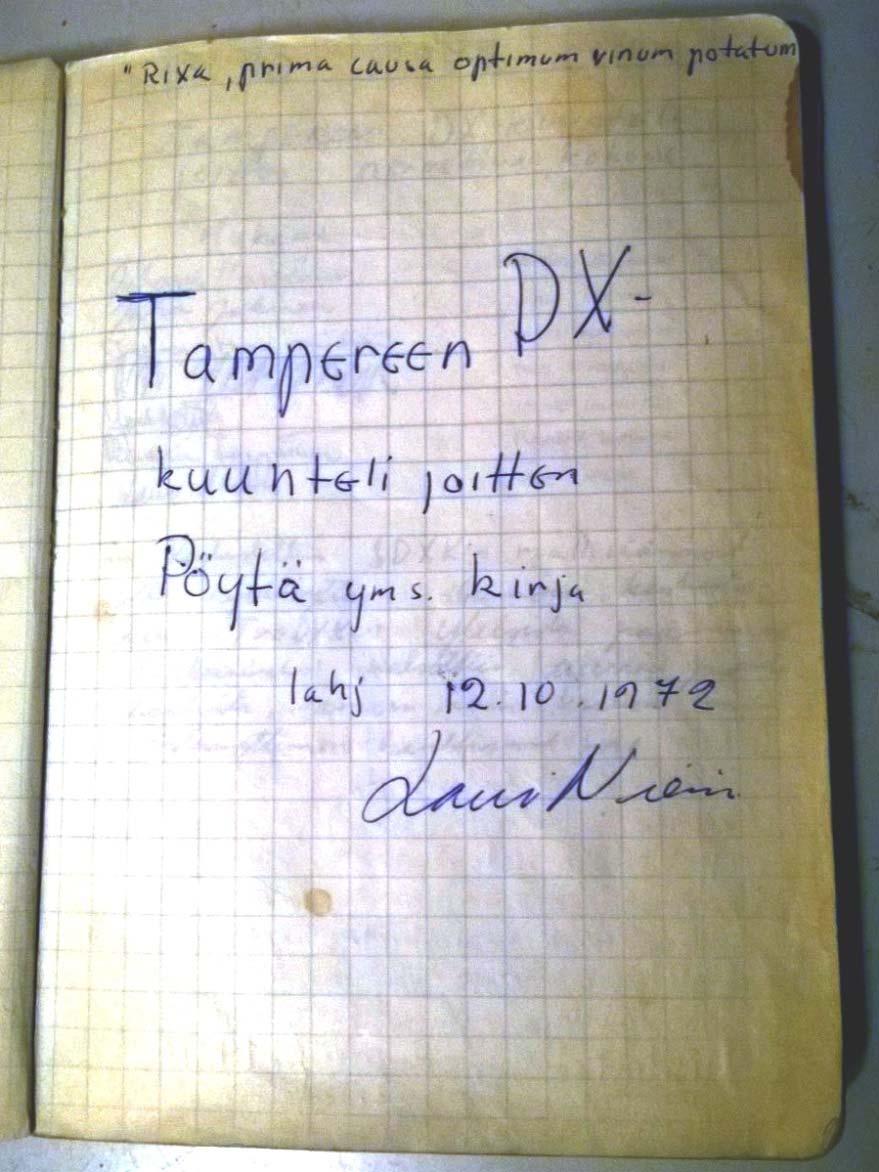 "Rixa, prima causa optimum vinum potatum
Tampereen DX-
kuuntelijoitten
Pöytä yms. kirja
lahj 12.10.1972
Lauri